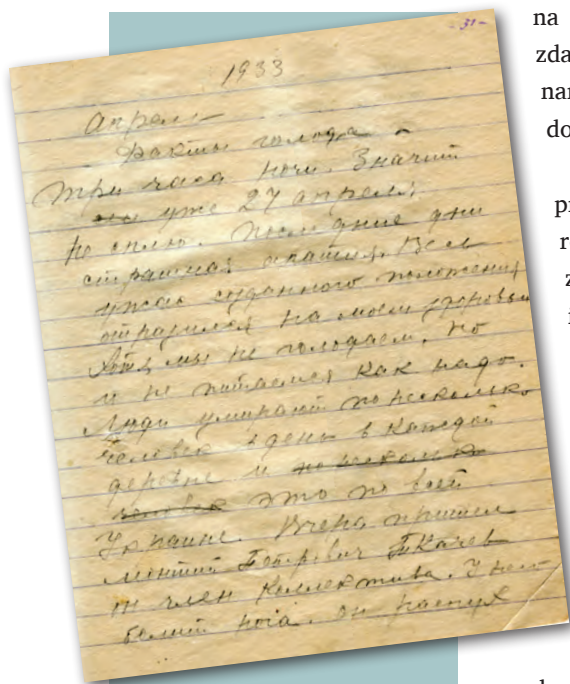 -31-
1933
Апрель
Факты голода
Три часа ночи. Значит
уже 27 апреля,
Не сплю. Последние дни
страшная апатия. Весь
ужас созданного положения
отразился на моем здоровьи
Хотя мы не голодаем, но
и не питаемся как надо.
Люди умирают по несколько
человек в день в каждой
деревне и по несколько
человек это по всей
Украине. Вчера пришел
Петрович Ткачев
он член коллектива. У него
болит нога. он распух
na
zda
nar
do
r
z